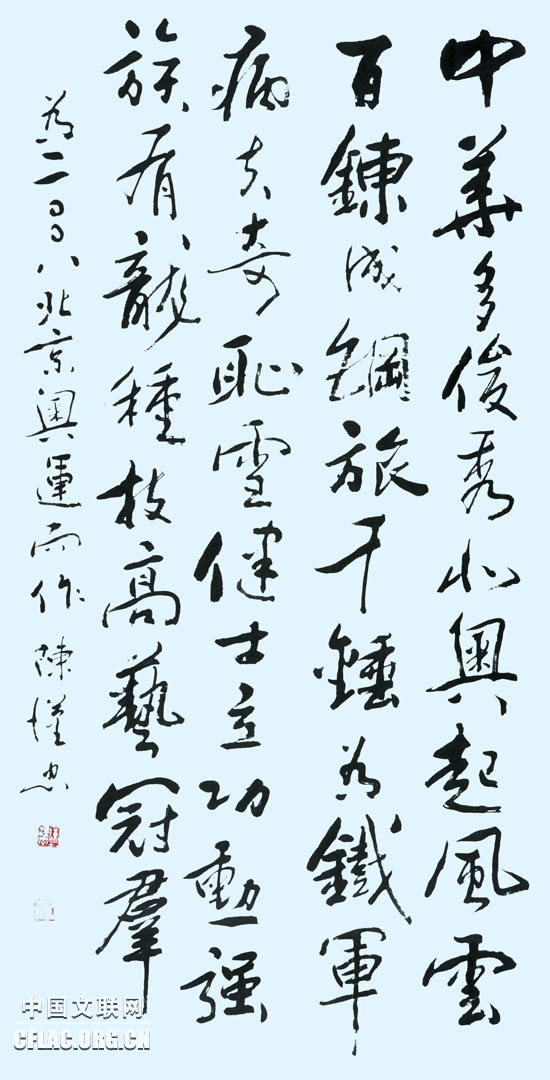 中華多俊秀北奧起風雲
百鍊成鋼旅千錘為鐵軍
病夫奇恥雪健士立功勳强
族有龍種技高藝冠羣
為二〇〇八北京奧運而作 陳
中国文联网
CFLAC.ORG.CN